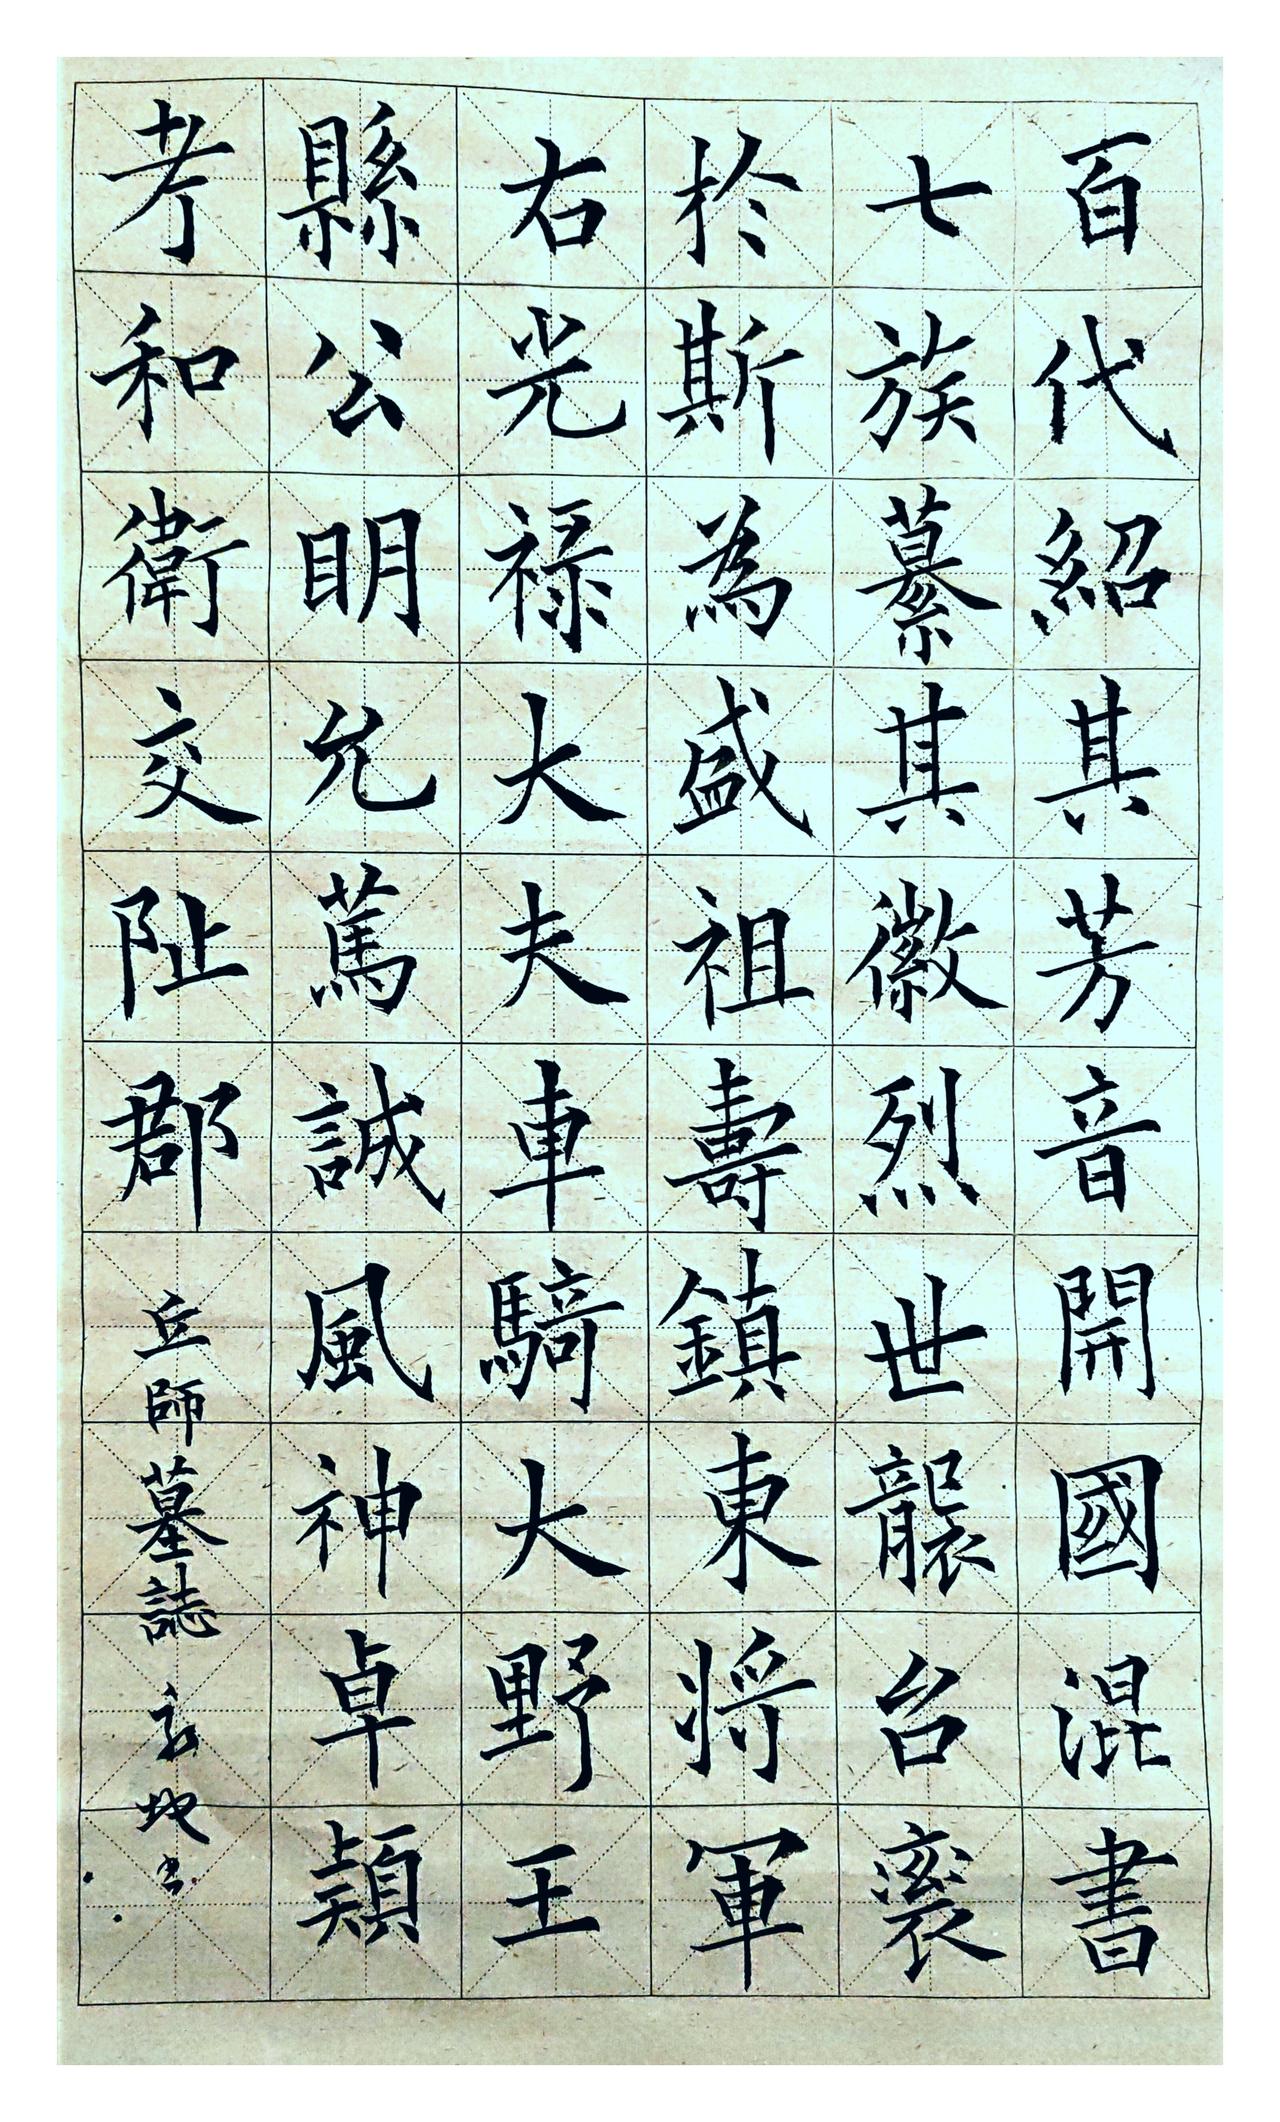 百代紹其芳音開國混書
七族纂其徽烈世襲台袞
於斯為盛祖壽鎮東將軍
右光禄大夫車騎大野王
縣公明允篤誠風神卓穎
考和衛交阯郡
丘師墓誌